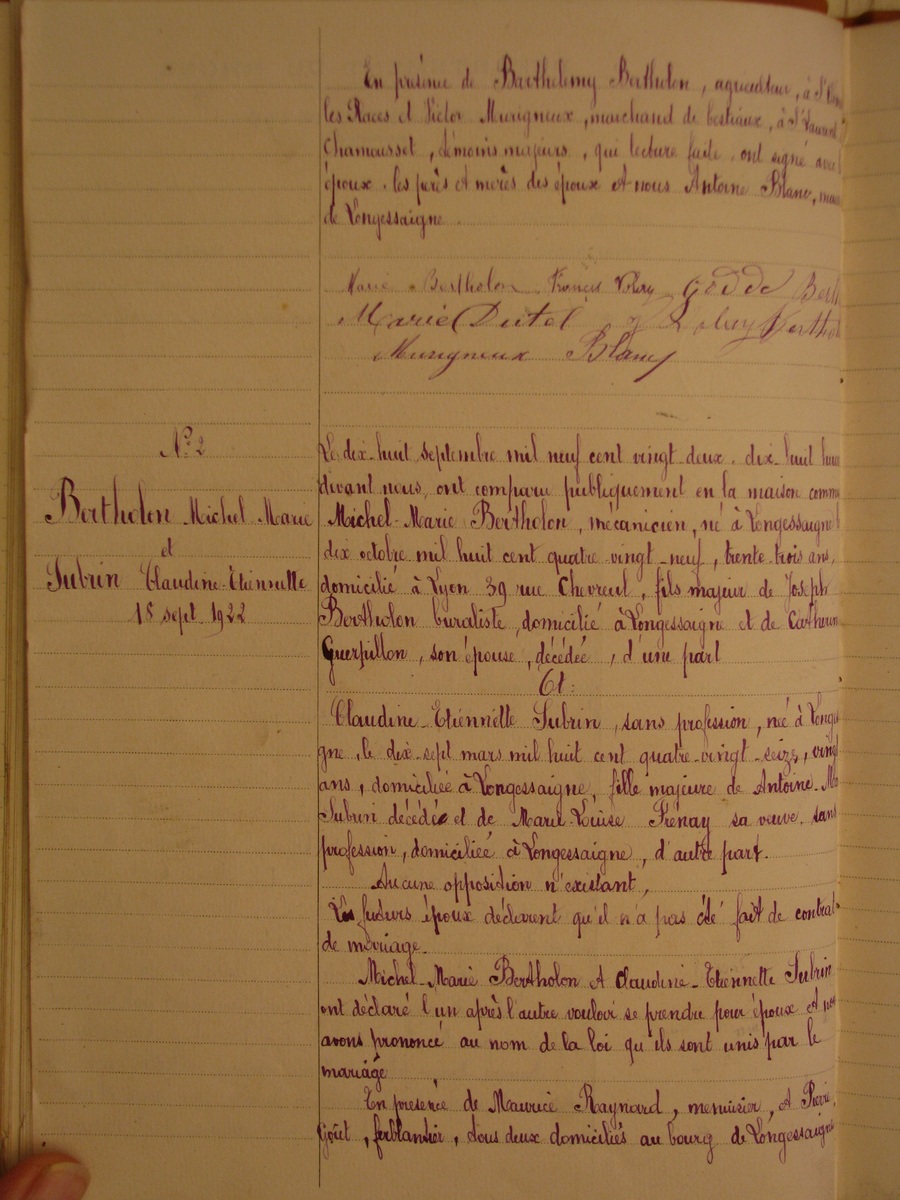 En présence de Barthelemy Bertholon, à St
les Places et Victor Murigneux, marchand de bestiaux, à St Laurent
Chamousset, témoins majeurs, qui lecture faite, ont signé avec
époux, les pères et mères des époux et nous Antoine Blanc, mai
de Longessaigne.
Marie Bertholon Francis Berth
Marie Berthol
Murigneux Blanc
N° 2
Bertholon Michel Marie
et
Subrin Claudine Etiennette
18 sept. 1922
Le dix-huit septembre mil neuf cent vingt-deux, dix-huit heur
devant nous, ont comparu publiquement en la maison commu
Michel-Marie Bertholon, mécanicien, né à Longessaigne
dix octobre mil huit cent quatre vingt-neuf, trente trois ans,
domicilié à Lyon 39 rue Chevreul, fils majeur de Joseph
Bertholon buraliste, domicilié à Longessaigne et de Catherin
Guerpillon, son épouse, décédée, d'une part
Et:
Claudine-Etiennette Subrin, sans profession, née à Longes
gne, le dix-sept mars mil huit cent quatre-vingt-seize, vingt
ans, domiciliée à Longessaigne, fille majeure de Antoine-Ma
Subrin décédé et de Marie-Louise sa veuve, sans
profession, domiciliée à Longessaigne, d'autre part.
Aucune opposition n'existant,
Les futurs époux déclarent qu'il n'a pas été fait de contrat
de mariage.
Michel-Marie Bertholon et Claudine-Etiennette Subrin
ont déclaré l'un après l'autre vouloir se prendre pour époux et nous
avons prononcé au nom de la loi qu'ils sont unis par le
mariage
En présence de Maurice Raynard, menuisier, et Pierre
Goût, ferblantier, tous deux domiciliés au bourg de Longessaigne